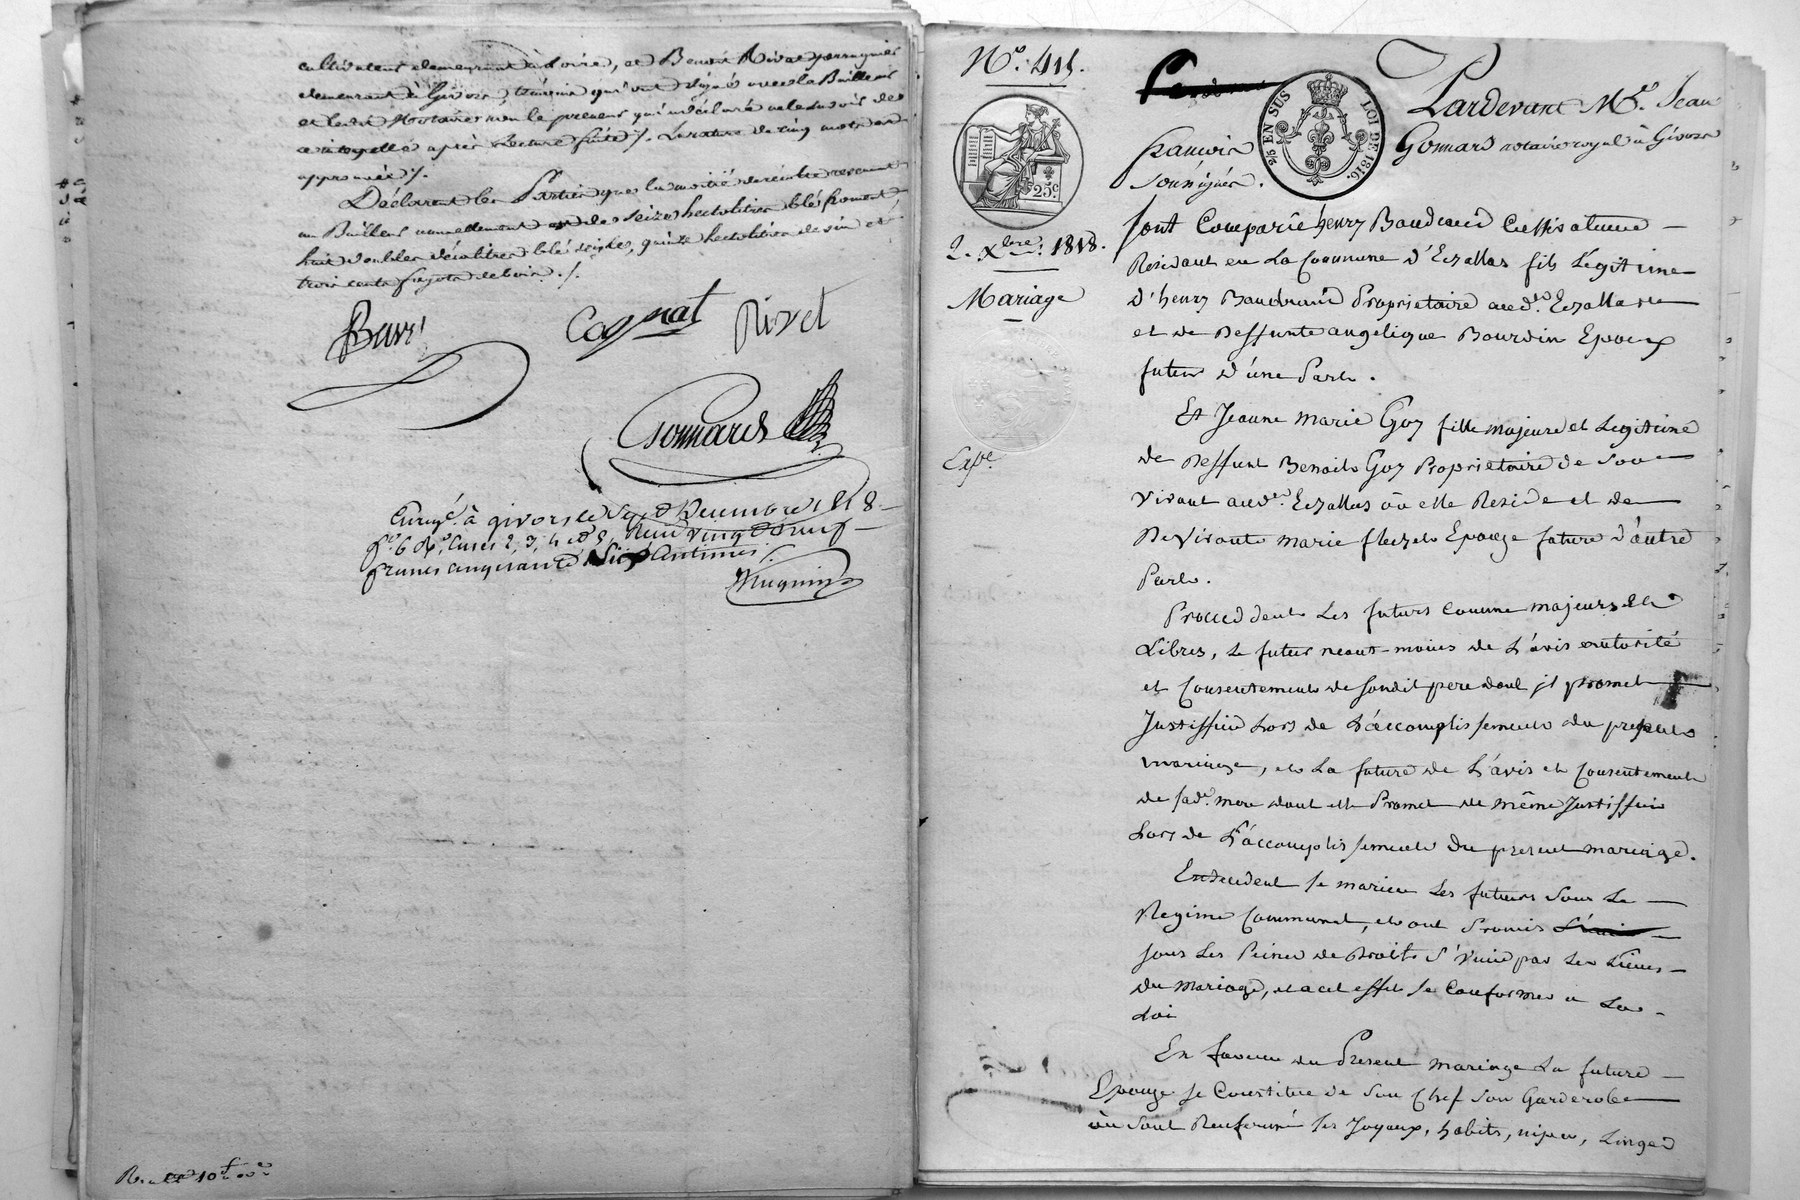 cultivateur demeurant à Loire, et Benoit Rivat perruquier
demeurant à Givors, témoins qui ont signé avec le Bailleur
et ledit Notaire non le preneur qui a déclaré ne le savoir de
ce interpellé après lecture faite /. La rature de cinq mots est
approuvée /.
Déclarent les Parties que la moitié de revenant
au Bailleur annuellement est de seize hectolitres blé froment
huit doubles décalitres blé seigle, quinze hectolitres de vin et
trois cents fagots de bois. /.
Cagnat
Rivet
Gonnard
Enregé. à givors le Sept Décembre 1818
fo. 6 Ro. Cases 2, 3, 4 et 5, Reçu vingt neuf
francs cinquante Six Centimes.
No. 415.
25c
2. Xbre. 1818.
Mariage
Expe.
25 EN SUS
LOI DE 1816.
Pardevant Me. Jean
françois Gonnard notaire royal à Givors
soussigné.
sont Comparû henry Baudrand Cultivateur
Residant en La Commune d'Echallas fils Legitime
D'henry Baudrand Proprietaire audt. Echallas
et de Deffunte angelique Bourdin Epoux
futur d'une Part.
Et Jeanne Marie Goy fille majeure et Legitime
de Deffunt Benoit Goy Proprietaire de son
Vivant audt. Echallas ou elle Reside et de
De Vivante marie Epouze future d'autre
Part.
Proceddent Les futurs comme majeurs et
Libres, Le futur neant-moins de L'avis autorité
et Consentement de sondit pere dont il promet
Justiffier Lors de L'accomplissement du present
mariage, et La future de L'avis et Consentement
de sade. mere dont elle Promet de même Justiffier
Lors de L'accomplissement du present mariage.
Entendent se marier Les futurs sous Le
Regime Communal, et ont Promis
sous Les Peines de Droit S'unir par Les Liens
du Mariage, et a cet effet se Conformer a La
Loi
En faveur du Present mariage La future
Epouze se Constitue de Son Chef Son Garderobe
où sont Renfermé ses Joyaux, habits, nipes, Linges